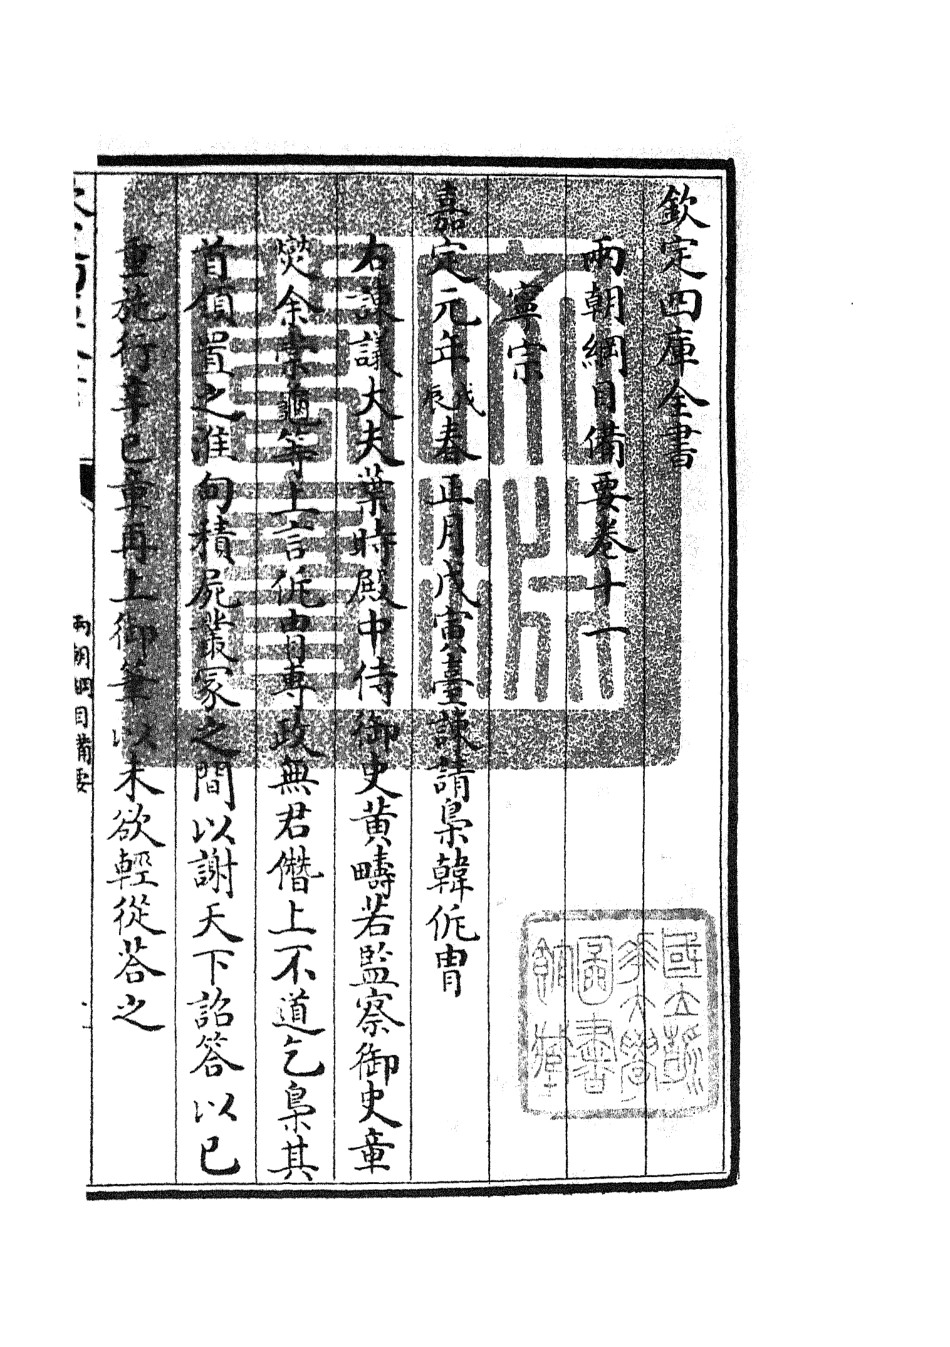 欽定四庫全書
兩朝綱目備要卷十一
寧宗
嘉定元年戊辰春正月戊寅臺諫請梟韓侂胄
右諫議大夫葉時殿中侍御史黄疇若監察御史章
燮余崇龜等上言侂胄專政無君僭上不道乞梟其
首領置之淮甸積屍叢冢之間以謝天下詔答以已
重施行辛巳章再上御筆以未欲輕從荅之
兩朝綱目備要
文淵閣寶
國立浙江大學圖書館藏